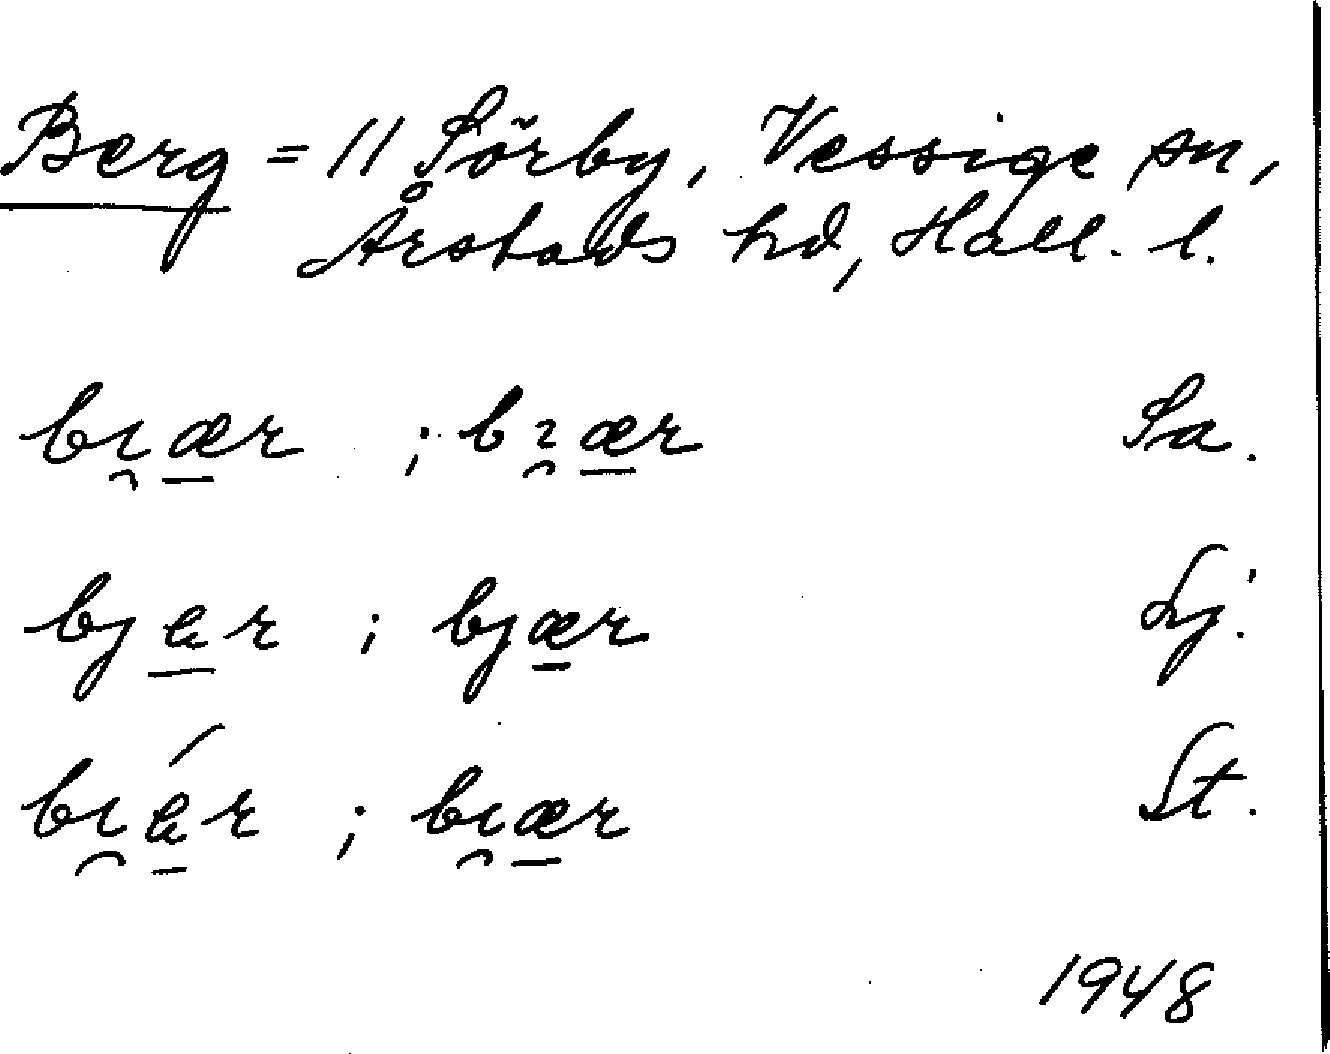 Berg = 11 Sörby, Vessige sn,
Årstads hd, Hall. l.
bı̯æ̲r ; bɿ̯æ̲r Sa.
bje̲r ; bjæ̲r Lj.
bı̯é̲r ; bı̯æ̲r St.
1948